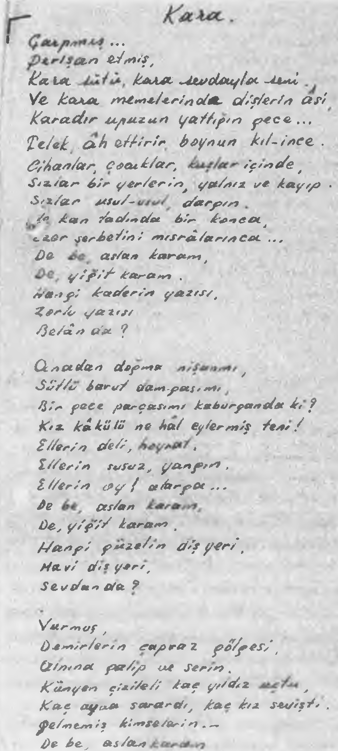 Kara.
Çarpmış...
Perişan etmiş,
Kara sütü, kara sevdayla seni.
Ve kara memelerinde dişlerin âsi,
Karadır upuzun yattığın gece...
Felek, âh ettirir, boynun kıl-ince.
Cihanlar, çocuklar, kuşlar içinde,
Sızlar bir yerlerin, yalnız ve kayıp.
Sızlar usul-usul, dargın.
kan tadında bir konca,
şerbetini mısrâlarınca...
De be, aslan karam,
De, yiğit karam.
Hangi kaderin yazısı,
Zorlu yazısı
Belân da?
Anadan doğma nişanmı,
Sütlü barut damgasımı,
Bir gece parçasımı kaburganda ki?
Kız kâkülü ne hâl eylermiş teni!
Ellerin deli, hoyrat.
Ellerin susuz, yangın.
Ellerin oy! alarga...
De be, aslan karam,
De, yiğit karam.
Hangi güzelin diş yeri,
Mavi diş yeri,
Sevdanda?
Vurmuş,
Demirlerin çapraz gölgesi,
Alnına galip ve serin.
Künyen çizileli kaç yıldız uçtu,
Kaç ayva sarardı, kaç kız sevişti.
Gelmemiş kimselerin...
De be, aslan karam